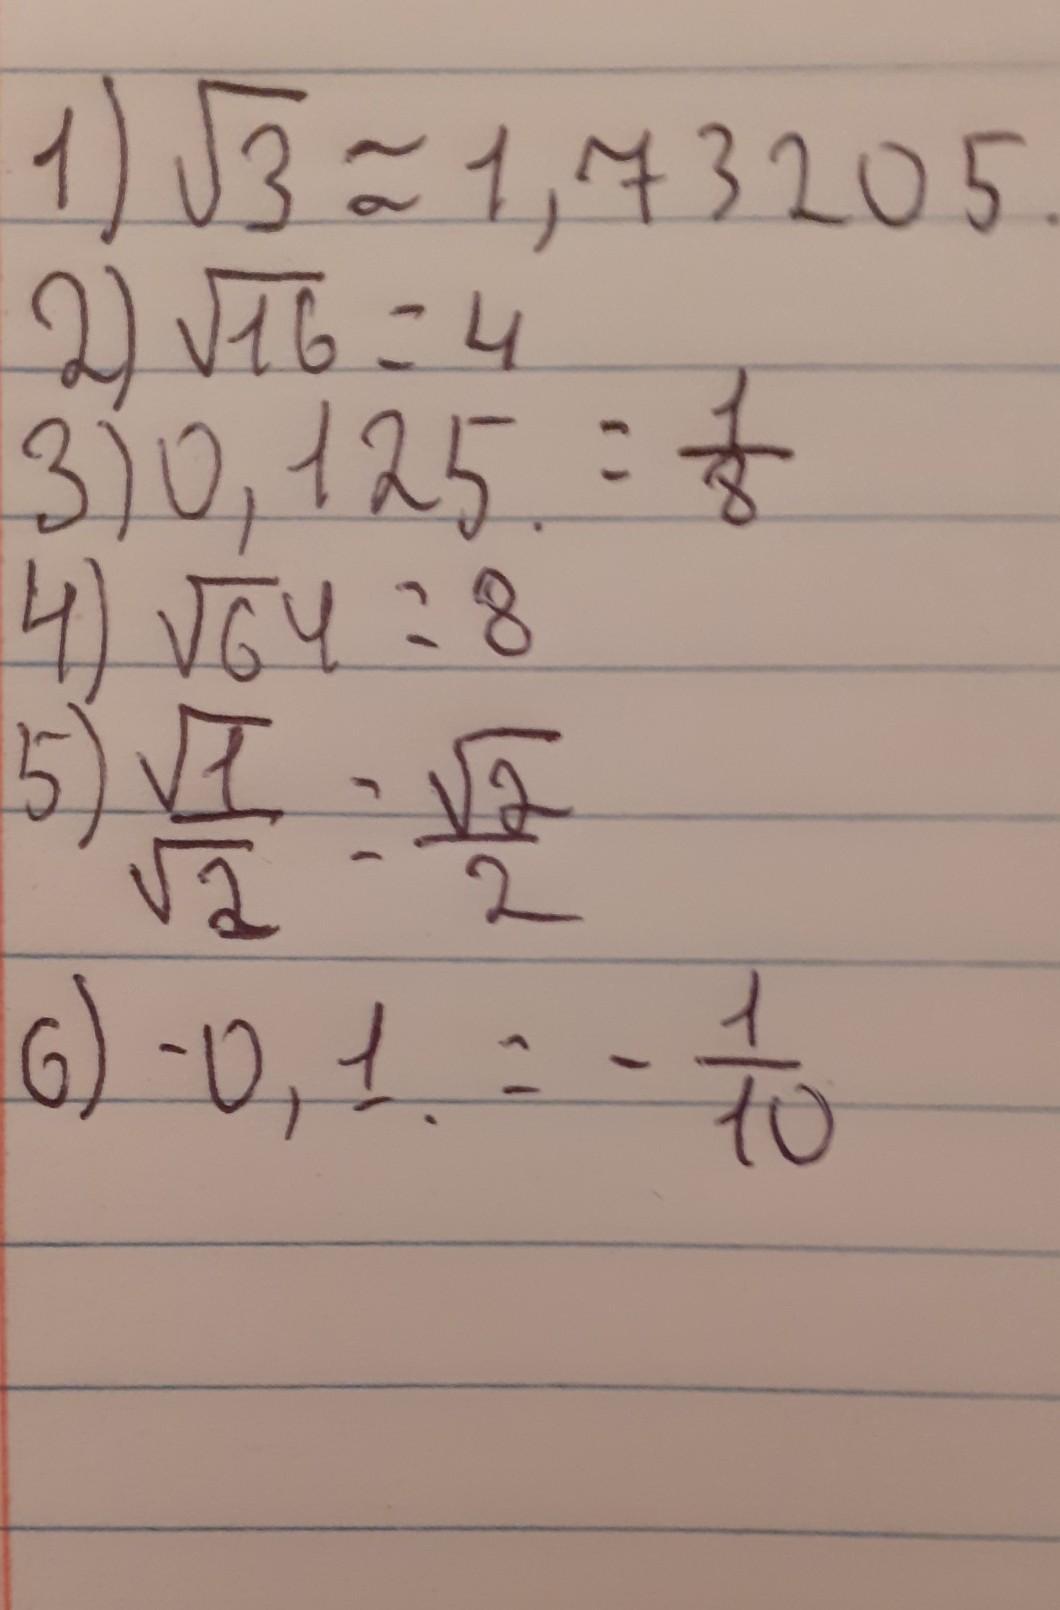 1) √3 ≃ 1,73205.
2) √16 = 4
3) 0,125. = 1/8
4) √64 = 8
5) √1/√2 = √2/2
6) -0,1. = - 1/10